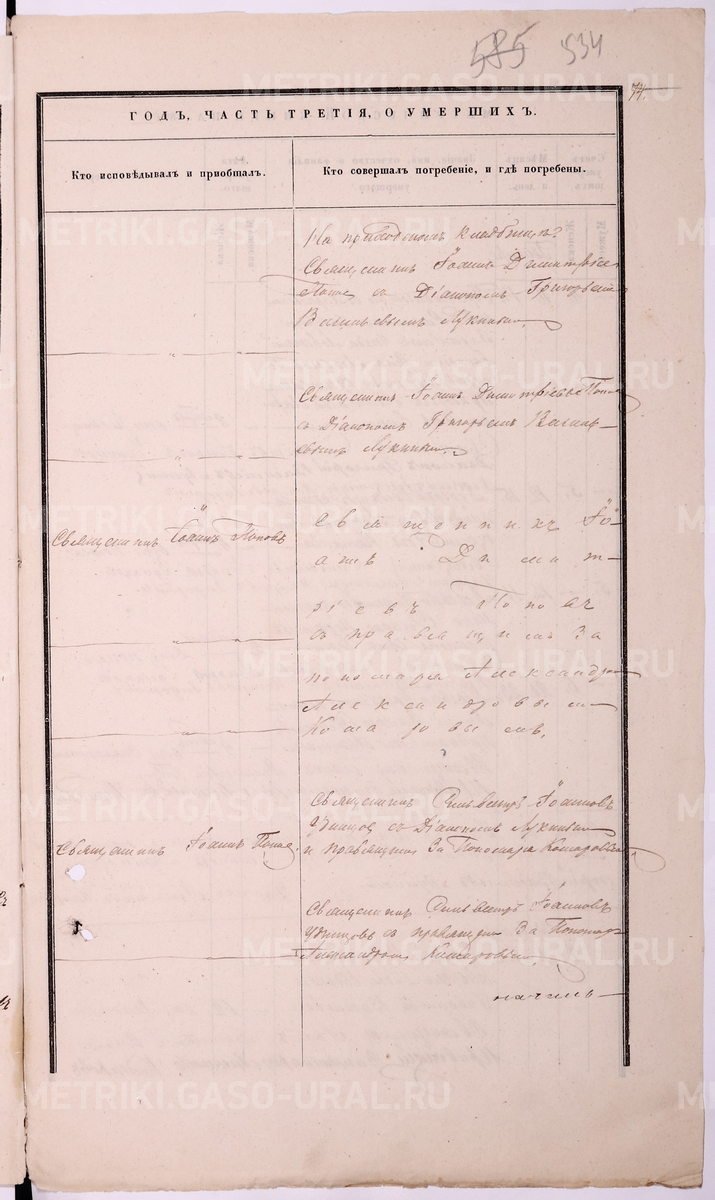 585 534
74
ГОДЪ, ЧАСТЬ ТРЕТІЯ, О УМЕРШИХЪ.
Кто исповѣдывалъ и пріобщалъ.
Кто совершалъ погребеніе, и гдѣ погребены.
На приходскомъ кладбищѣ
Священникъ Іоаннъ Димитріев
Попов съ Діакономъ Григоріем
Васильевымъ Лукиным
Священникъ Іоаннъ Димитріевъ Попов
съ Діакономъ Григорьем Василь-
евымъ Лукиным
Священникъ Іоаннъ Поповъ
Священникъ Іо-
аннъ Димит-
ріевъ Поповъ
съ правящимъ за
пономаря Александро
Александровым
Комаровымъ.
Священникъ Іоаннъ Попов
Священникъ Сильвестръ Іоанновъ
Удинцов съ Діакономъ Лукиным
и правящим за Пономаря Комаровым
Священникъ Сильвестръ Іоанновъ
Удинцовъ с правящим за Пономаря
Александром Комаровым
METRIKI.GASO-URAL.RU